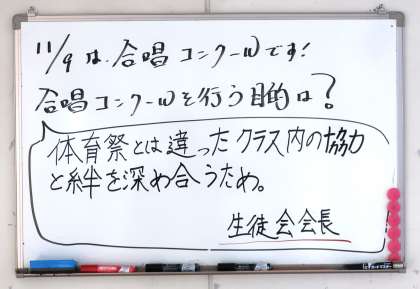 11/9 は、合唱コンクールです!
合唱コンクールを行う目的は?
体育祭とは違ったクラス内の協力
と絆を深め合うため。
生徒会会長